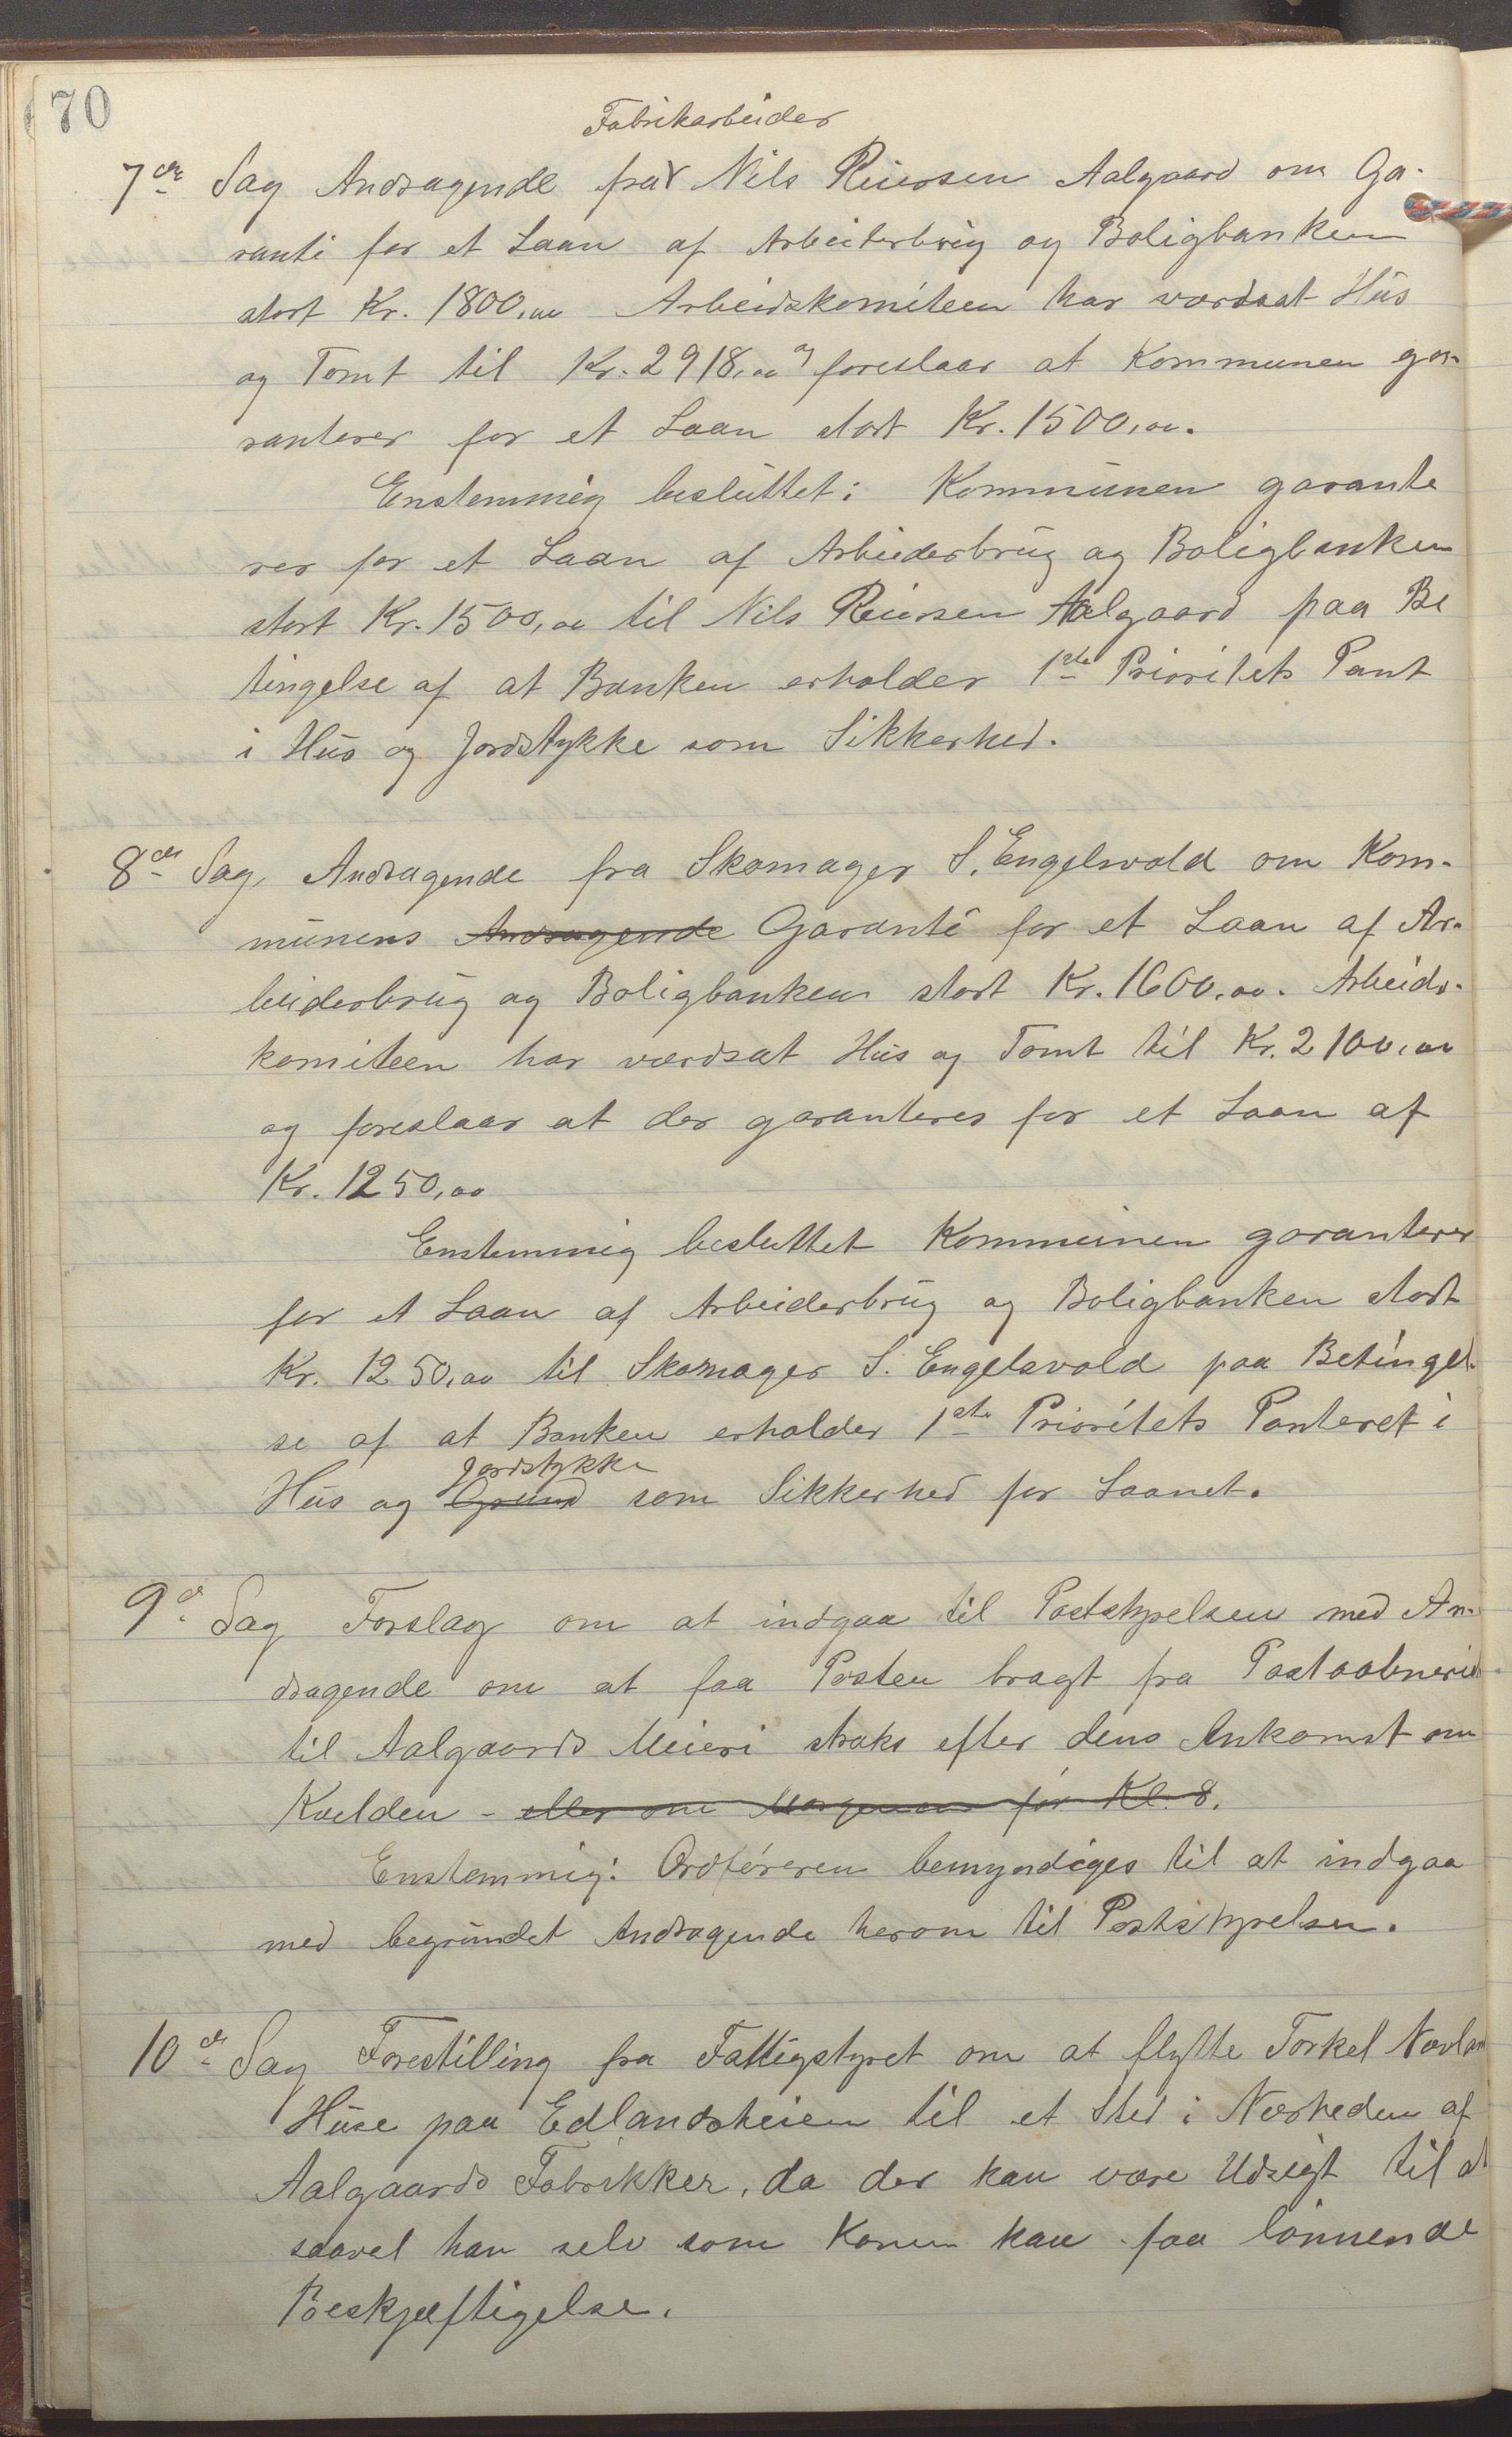 70
Fabrikarbeider
7de Sag Andragende fra Nils Reiersen Aalgaard om Ga-
ranti for et Laan af Arbeiderbrug og Boligbanken
stort Kr. 1800,00 Arbeidskomiteen har værdsat Hus
og Tomt til Kr. 2918,00 og foreslaar at Kommunen ga-
ranterer for et Laan stort Kr. 1500,00.
Enstemmig besluttet: Kommunen garante
rer for et Laan af Arbeiderbrug og Boligbanken
stort Kr. 1500,00 til Nils Reiersen Aalgaard paa Be
tingelse af at Banken erholder 1ste Prioritets Pant
i Hus og Jordstykke som Sikkerhed.
8de Sag, Andragende fra Skomager S. Engelsvold om Kom-
munens Andragende Garanti for et Laan af Ar-
beiderbrug og Boligbanken stort Kr. 1600,00. Arbeids-
komiteen har værdsat Hus og Tomt til Kr. 2100,00
og foreslaar at der garanteres for et Laan af
Kr. 1250,00
Enstemmig besluttet Kommunen garanterer
for et Laan af Arbeiderbrug og Boligbanken stort
Kr. 1250,00 til Skomager S. Engelsvold paa Betingel-
se af at Banken erholder 1ste Prioritets Panteret i
Jordstykke
Hus og Grund som Sikkerhed for Laanet.
9de Sag Forslag om at indgaa til Poststyrelsen med An-
dragende om at faa Posten bragt fra Postaabneriet
til Aalgaards Meieri straks efter dens Ankomst om
Kvelden - eller om Morgenen før Kl. 8.
Enstemmig: Ordføreren bemyndiges til at indgaa
med begrundet Andragende herom til Poststyrelsen.
10de Sag Forestilling fra Fattigstyret om at flytte Torkel
Huse paa Edlandsheien til et Sted i Nærheden af
Aalgaards Fabrikker, da der kan være Udsigt til at
saavel han selv som Konen kan faa lønnende
Beskjæftigelse.